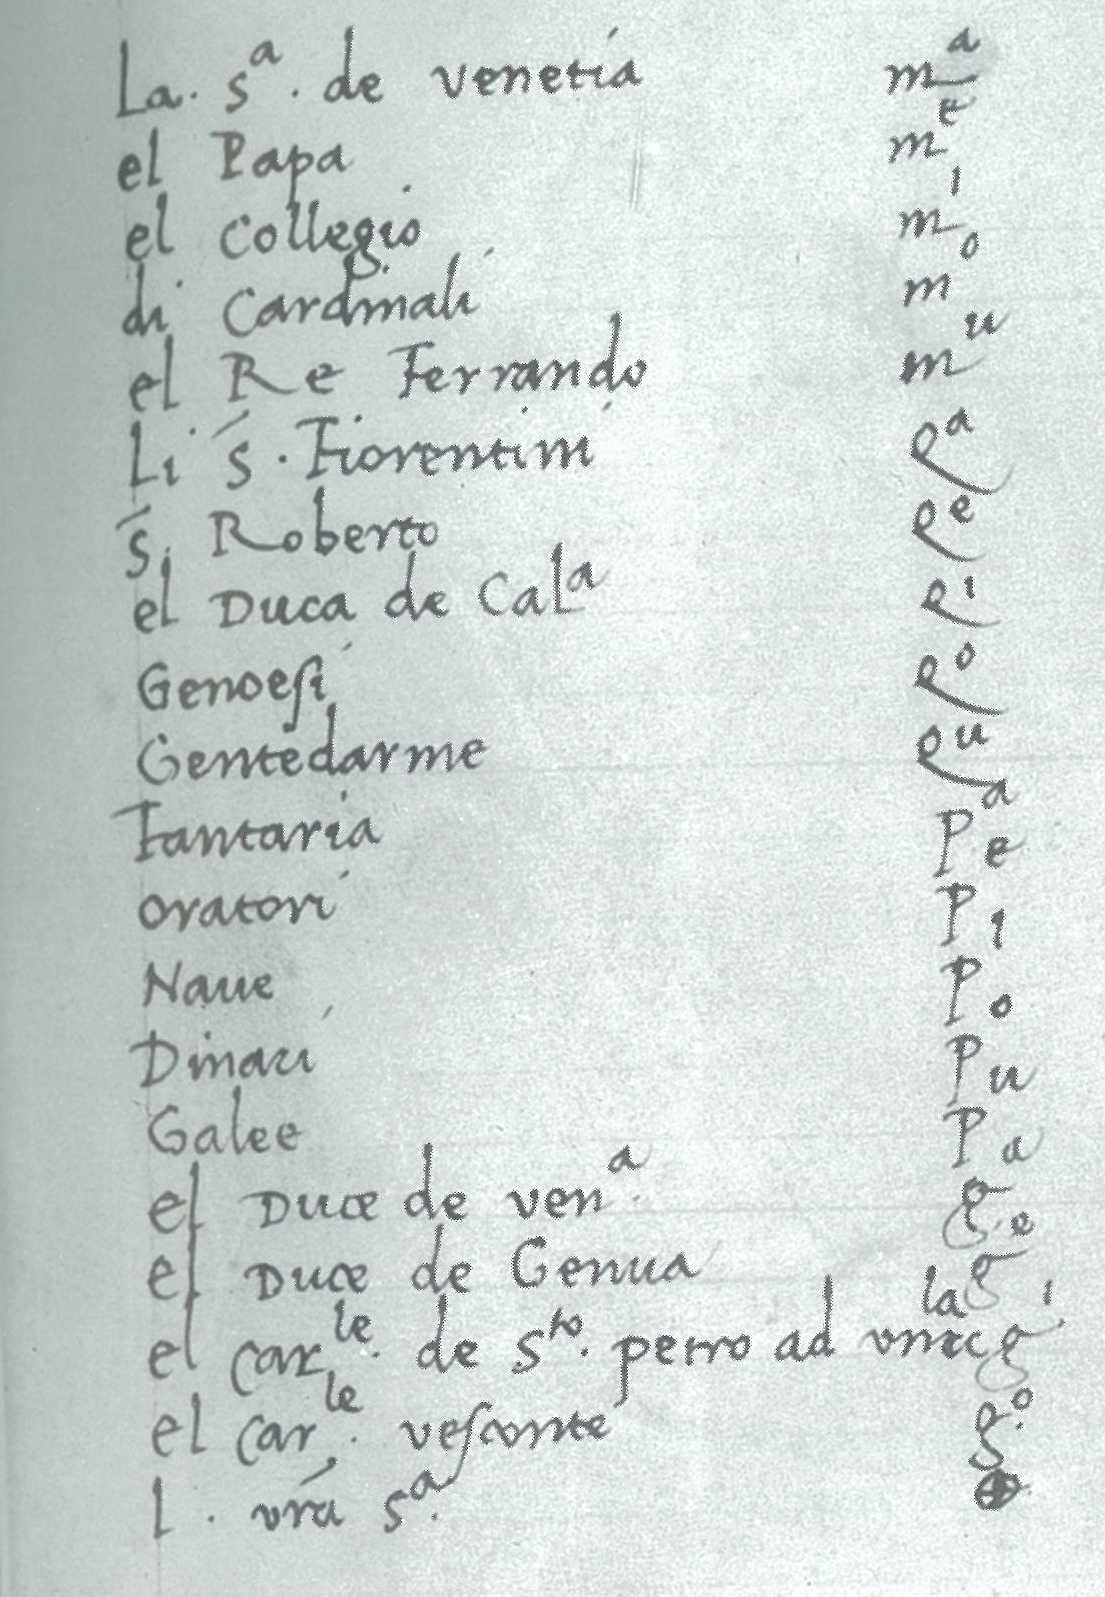 La. sᵃ. de venetia mᵃ
el Papa mᵉ
el Collegio mⁱ
di Cardinali mᵒ
el Re Ferrando mᵘ
Li s. Fiorentini ρᵃ
s. Roberto ρᵉ
el Duca de Calᵃ ρⁱ
Genoesi ρᵒ
Gentedarme ρᵘ
Fantaria Pᵃ
oratori Pe
Naue Pi
Dinari Po
Galee Pu
el Duce de venᵃ. ga
el Duce de Genua gᵉ
el carˡᵉ. de sᵗᵒ. petro ad vincula gⁱ
el carˡᵉ. vesconte gᵒ
l. vra sᵃ. ⊕